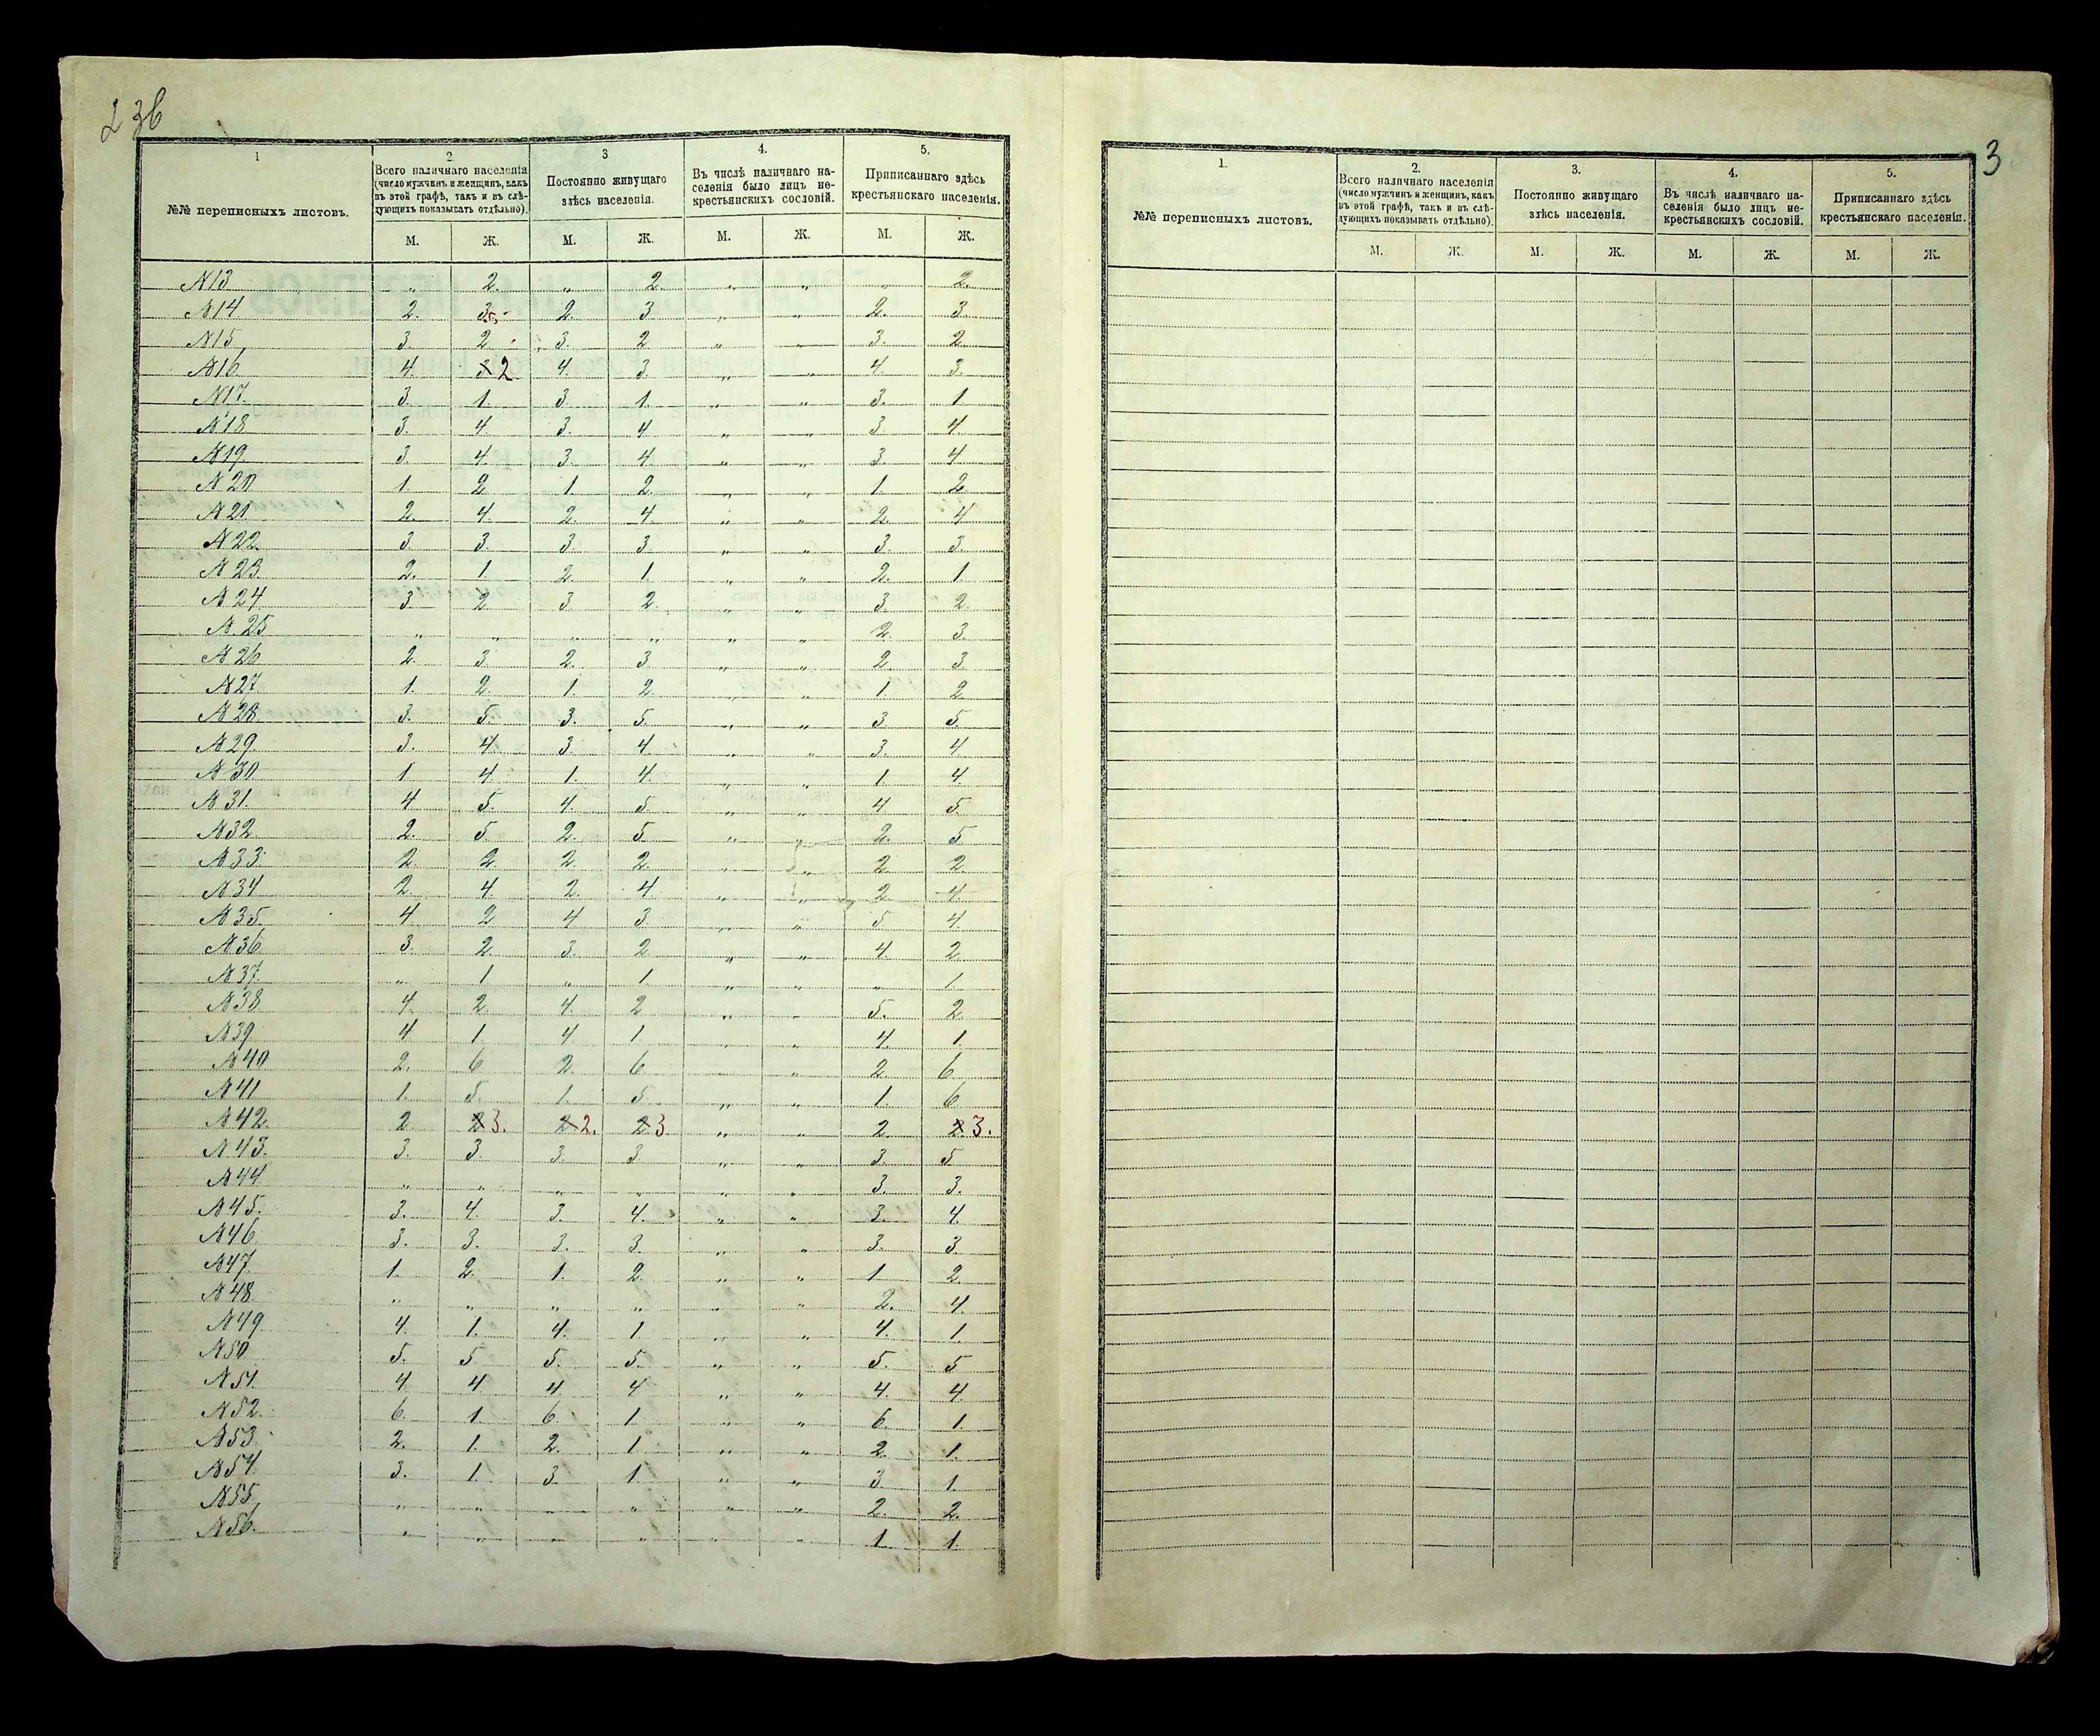 2 зв
1
2
3
4.
5.
№№ переписныхъ листовъ.
Всего наличнаго населенія (число мужчинъ и женщинъ, какъ въ этой графѣ, такъ и въ слѣ-дующихъ показывать отдѣльно).
Постоянно живущаго здѣсь населенія.
Въ числѣ наличнаго на-селенія было лицъ не-крестьянскихъ сословій.
Приписаннаго здѣсь крестьянскаго населенія.
М. Ж. М. Ж. М. Ж. М. Ж.
№13 " 2. " 2. " " " 2.
№14 2. 3. 2. 3 " " 2. 3.
№15 3. 2 3. 2 " " 3. 2
№16 4. 3 2 4. 3. " " 4. 3.
№17. 3. 1. 3. 1. " " 3. 1
№18 3. 4 3. 4 " " 3. 4.
№19. 3. 4. 3. 4. " " 3. 4
№20 1. 2 1. 2. " " 1. 2.
№21 2. 4. 2. 4. " " 2. 4
№22. 3. 3. 3. 3. " " 3. 3.
№23. 2. 1. 2. 1. " " 2. 1.
№24 3 2 3. 2. " " 3. 2.
№25 " " " " " " 2. 3.
№26 2. 3. 2. 3 " " 2 3.
№27 1. 2. 1. 2. " " 1. 2
№28. 3. 5. 3. 5. " " 3. 5.
№29. 3. 4. 3. 4. " " 3. 4
№30 1. 4. 1. 4. " " 1. 4.
№31. 4 5. 4. 5. " " 4 5.
№32. 2. 5. 2. 5. " " 2. 5
№33. 2. 2. 2. 2. " " 2. 2.
№34 2. 4. 2. 4 " " 2 4.
№35. 4. 2 4 3. " " 5. 4.
№36. 3. 2. 3. 2 " " 4. 2.
№37. " 1 " 1. " " " 1.
№38 4. 2. 4. 2 " " 5. 2.
№39 4 1. 4. 1 " " 4. 1.
№40 2. 6 2. 6 " " 2. 6
№41 1. 5. 1. 5 " " 1. 6
№42. 2 2 3. 2 2. 2 3 " " 2. 2 3.
№43. 3. 3. 3. 3 " " 3. 5
№44. " " " " " " 3. 3.
№45. 3. 4. 3. 4. " " 3. 4.
№46. 3. 3. 3. 3. " " 3. 3.
№47. 1. 2. 1. 2. " " 1 2
№48. " " " " " " 2. 4.
№49 4. 1. 4. 1 " " 4. 1.
№50 5. 5 5. 5. " " 5. 5
№51. 4 4 4 4 " " 4. 4.
№52. 6. 1 6. 1 " " 6. 1.
№53. 2. 1. 2. 1 " " 2. 1.
№54. 3. 1. 3. 1. " " 3. 1.
№55 " " " " " " 2. 2.
№56. " " " " " " 1. 1.
3
1.
2.
3.
4.
5.
№№ переписныхъ листовъ.
Всего наличнаго населенія (число мужчинъ и женщинъ, какъ въ этой графѣ, такъ и въ слѣ-дующихъ показывать отдѣльно).
Постоянно живущаго здѣсь населенія.
Въ числѣ наличнаго на-селенія было лицъ не-крестьянскихъ сословій.
Приписаннаго здѣсь крестьянскаго населенія.
М. Ж. М. Ж. М. Ж. М. Ж.